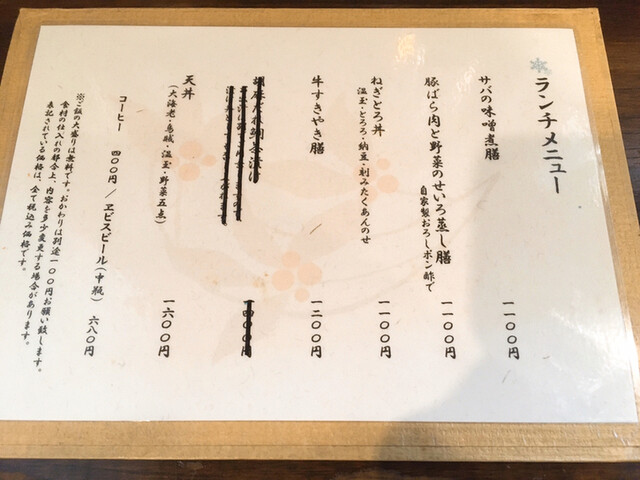 ランチメニュー
サバの味噌煮膳 一一〇〇円
豚ばら肉と野菜のせいろ蒸し膳 一一〇〇円
自家製おろしポン酢で
ねぎとろ丼 一一〇〇円
温玉・とろろ・納豆・刻みたくあんのせ
牛すきやき膳 一二〇〇円
鯛茶漬け
天丼 一六〇〇円
(大海老・烏賊・温玉・野菜五点)
コーヒー 四〇〇円 / ヱビスビール(中瓶) 六八〇円
※ご飯の大盛りは無料です。おかわりは別途一〇〇円お願い致します。
食材の仕入れの都合上、内容を多少変更する場合があります。
表記されている価格は、全て税込み価格です。